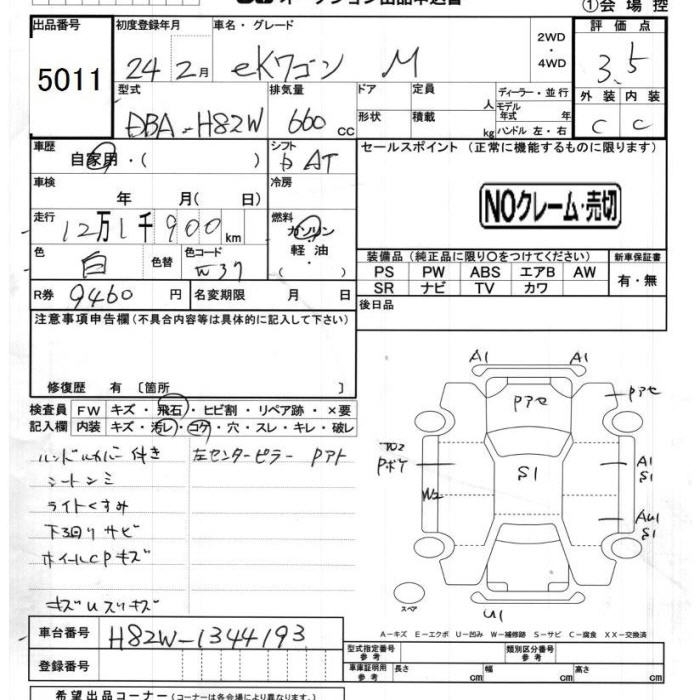 オークション出品申込書
①会場控
出品番号 初度登録年月 車名・グレード 2WD・4WD 評価点
5011 24 2月 eKワゴン M 3.5
型式 排気量 ドア 定員 人 ディーラー・並行 外装 内装
DBA-H82W 660 cc 形状 積載 kg モデル年式 年 ハンドル 左・右 C C
車歴 シフト セールスポイント (正常に機能するものに限ります)
自家用・( ) AT
車検 冷房
年 月( 日)
NOクレーム・売切
走行 燃料
12万1千900km ガソリン
軽油
・( )
色 色替 色コード
白 W37
装備品 (純正品に限り〇をつけてください) 新車保証書
PS PW ABS エアB AW 有・無
SR ナビ TV カワ
R券 9460円 名変期限 月 日 後日品
注意事項申告欄(不具合内容等は具体的に記入して下さい)
修復歴 有 〔箇所 〕
検査員 FW キズ・飛石・ヒビ割・リペア跡・×要
記入欄 内装 キズ・汚レ・コゲ・穴・スレ・キレ・破レ
ハンドルカバー付き 左センターピラー Pアト
シートシミ
ライトくすみ
下回りサビ
ホイールCPキズ
キズUスリキズ
A1 A1
Pアセ Pアセ
Pボケ S1 A1
S1
W2 AU1
S1
スペア U1
A-キズ E-エクボ U-凹み W-補修跡 S-サビ C-腐食 XX-交換済
車台番号 H82W-1344193
型式指定番号 参考 類別区分番号 参考
登録番号 車庫証明用 参考 長さ cm 幅 cm 高さ cm
希望出品コーナー (コーナーは各会場により異なります。)